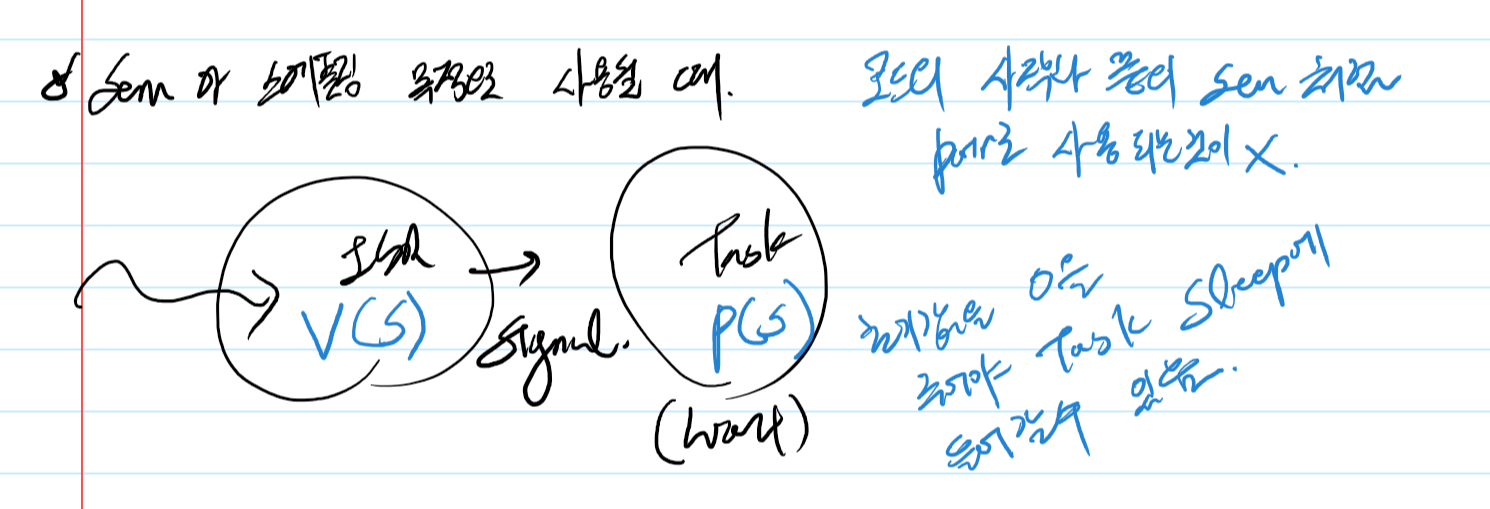 Sem 이 스케쥴링 목적으로 사용될 때.
코드의 시작부나 끝의 Sem 하나가
pair로 사용 되는것이 X.
ISR
V(S)
signal.
Task
P(S)
(wait)
초기값을 0을
주어야 Task Sleep에
들어갈수 있음.